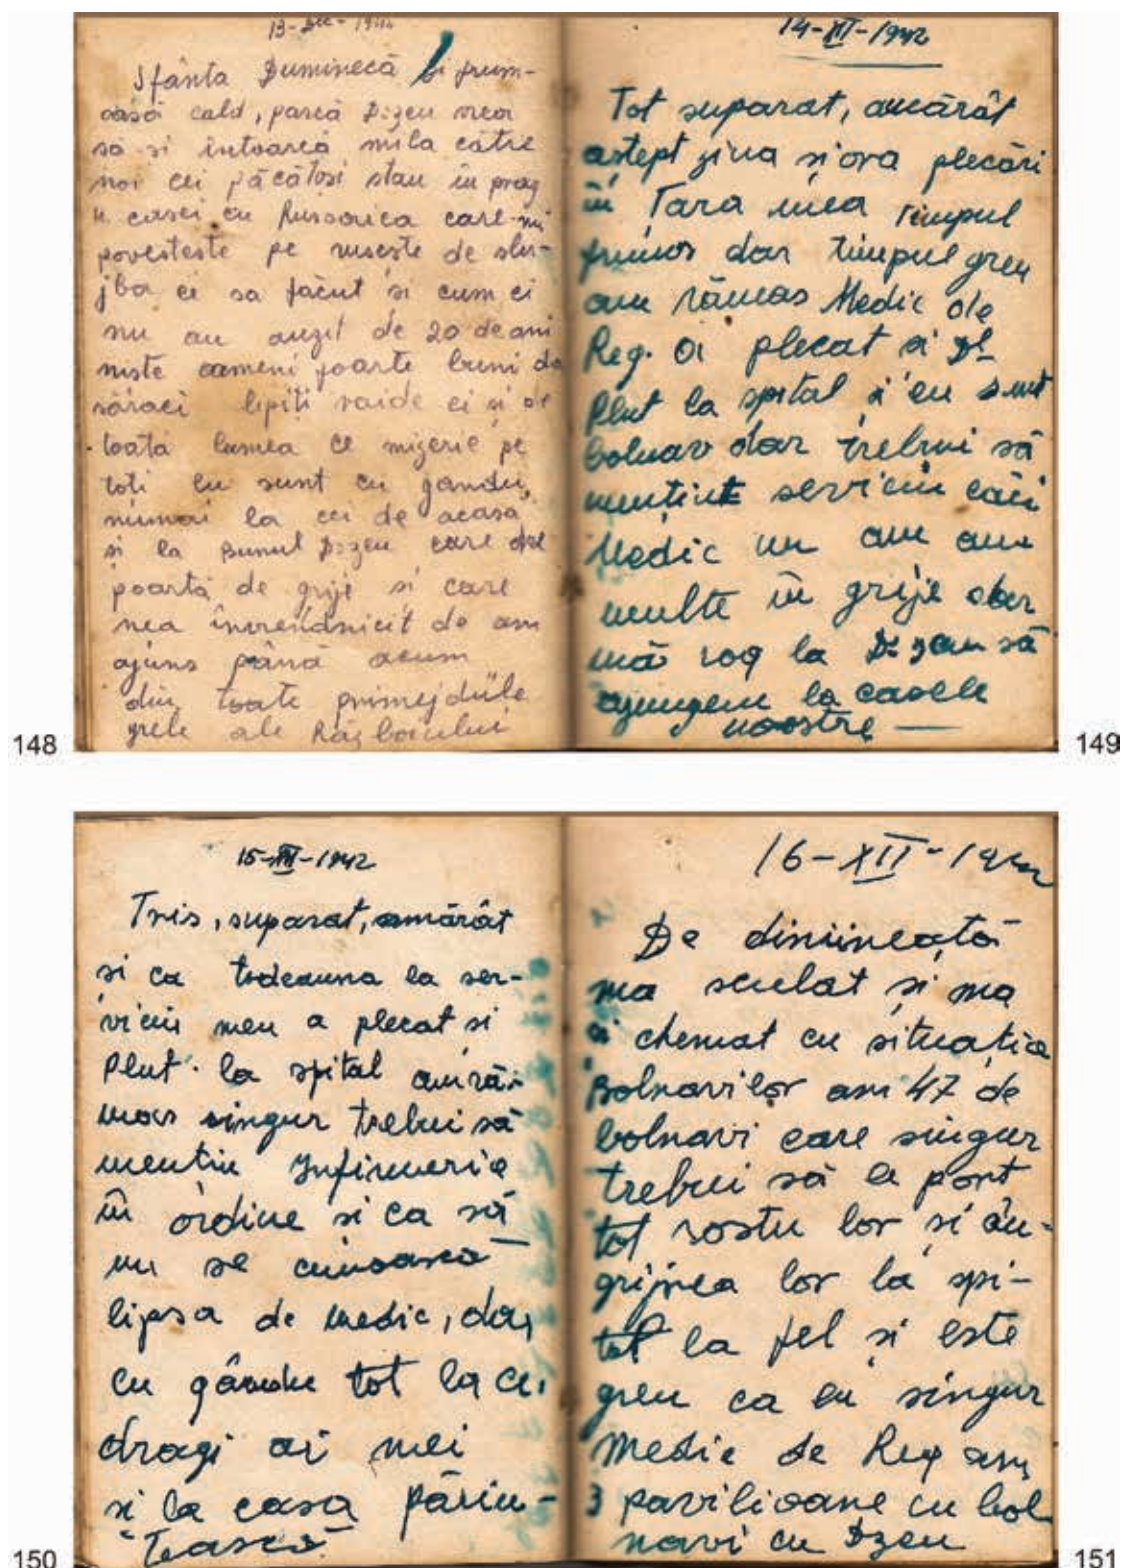 13-Dec-1942
Sfânta Duminecă și frum-
oasă cald, parcă D-zeu vrea
să si intoarcă mila către
noi cei păcătosi stau in prag
u casei cu Rusoaica care-mi
povesteste pe ruseste de slu-
jba ce sa făcut si cum ei
nu au auzit de 20 de ani
niste oameni foarte buni da
săraci lipiti vaide ei si de
toată lumea ce mizerie pe
toti eu sunt cu gandu,
numai la cei de acasă
si la Bunul D-zeu care
poartă de grije si care
nea învrednicit de am
ajuns până acum
din toate primejdiile
grele ale Războiului
148
14-XII-1942
Tot suparat, amărât
astept ziua si ora plecări
în Tara mea timpul
frumos dar timpul greu
am rămas Medic de
Reg. Oi plecat si Dl
Plut la spital si eu sunt
bolnav dar trebui să
mentint serviciu căci
Medic nu am am
multe în grije dar
mă rog la D-zeu să
ajungem la casele
noastre —
149
15-XII-1942
Tris, suparat, amărât
si ca todeauna la ser-
viciu meu a plecat si
Plut. la spital am ră-
mas singur trebui să
mentin Infirmeria
în ordine si ca să
nu se cunoască
lipsa de medic, dar
cu gându tot la cei
dragi ai mei
si la casa părin-
tească
150
16-XII-1942
De dimineață
ma sculat si ma
si chemat cu situația
Bolnavilor am 47 de
bolnavi care singur
trebui să le port
tot rostu lor si în-
grijirea lor la spi-
tal la fel si este
greu ca eu singur
Medic de Reg am
3 pavilioane cu bol
navi cu Dzeu
151